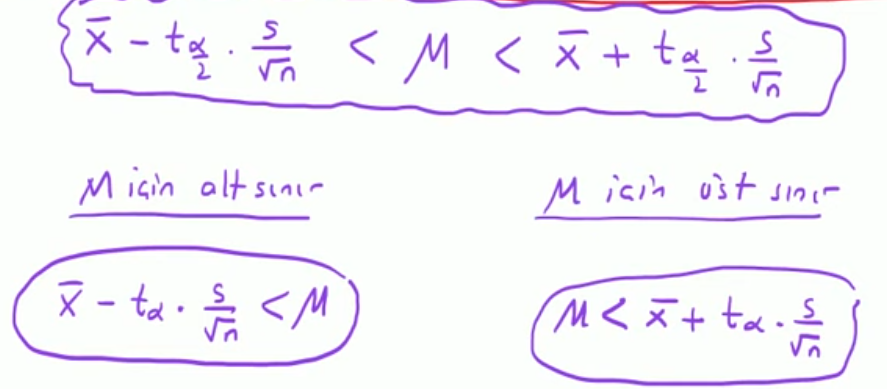 x̄ - t_{α/2} · s/√n < μ < x̄ + t_{α/2} · s/√n
μ için alt sınır
μ için üst sınır
x̄ - t_α · s/√n < μ
μ < x̄ + t_α · s/√n